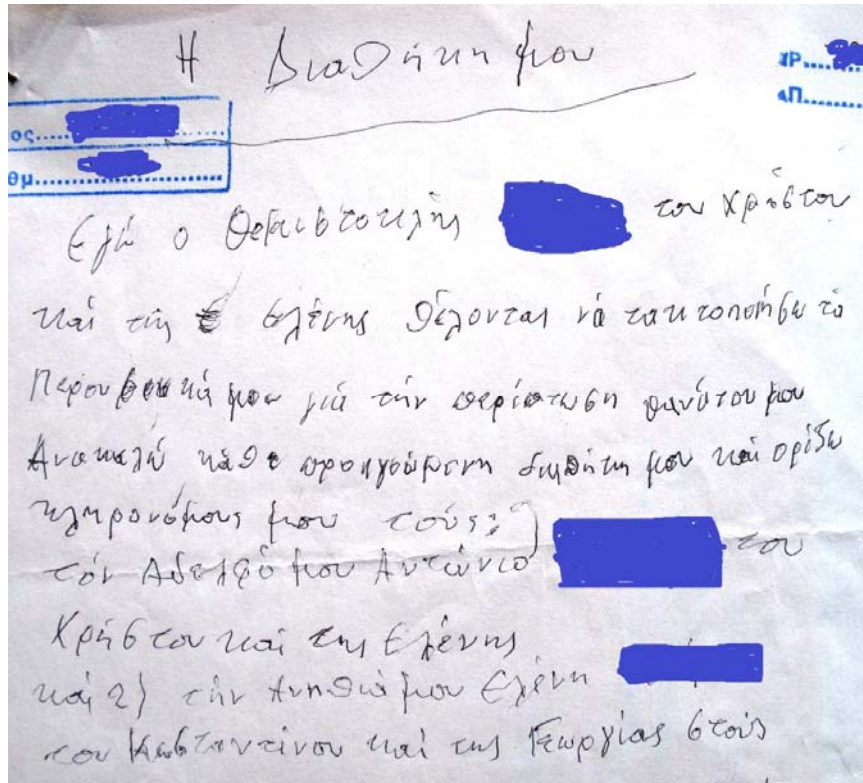 Η Διαθήκη μου
ος.....
θμ.....
ΧΡ.....
ΑΠ.....
Εγώ ο Θεμιστοκλής του Χρήστου
και της Ελένης θέλοντας νά τακτοποιήσω τά
Περουσιακά μου γιά τήν περίπτωση θανάτου μου
Ανακαλώ κάθε προηγούμενη διαθήκη μου και ορίζω
κληρονόμους μου τούς:
τόν Αδελφό μου Αντώνιο του
Χρήστου και της Ελένης
καί 2) τήν Ανηθιά μου Ελένη
του Κωσταντίνου και της Γεωργίας στούς